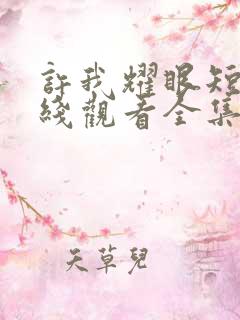 許我耀眼短
綫觀看全集
天草兒